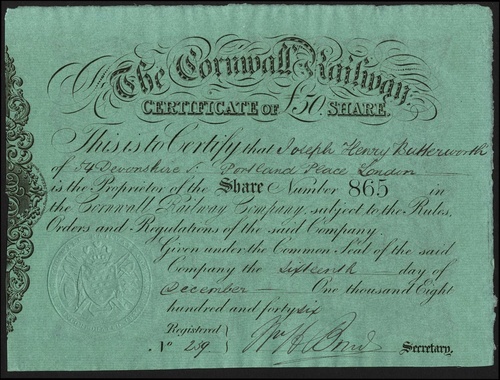 The Cornwall Railway.
CERTIFICATE OF £50 SHARE.
This is to Certify that Joseph Henry Butterworth
of 54 Devonshire St. Portland Place London
is the Proprietor of the Share Number 865 in
the Cornwall Railway Company, subject to the Rules,
Orders and Regulations of the said Company.
Given under the Common Seal of the said
Company the sixteenth day of
December One thousand Eight
hundred and forty six
Registered
No 259 Wm H Bond Secretary.